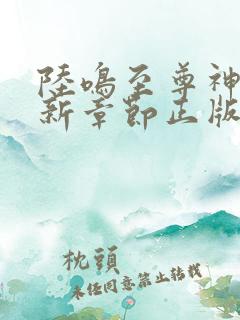 陸鳴至尊神
新章節正版
枕頭
未经同意禁止转载